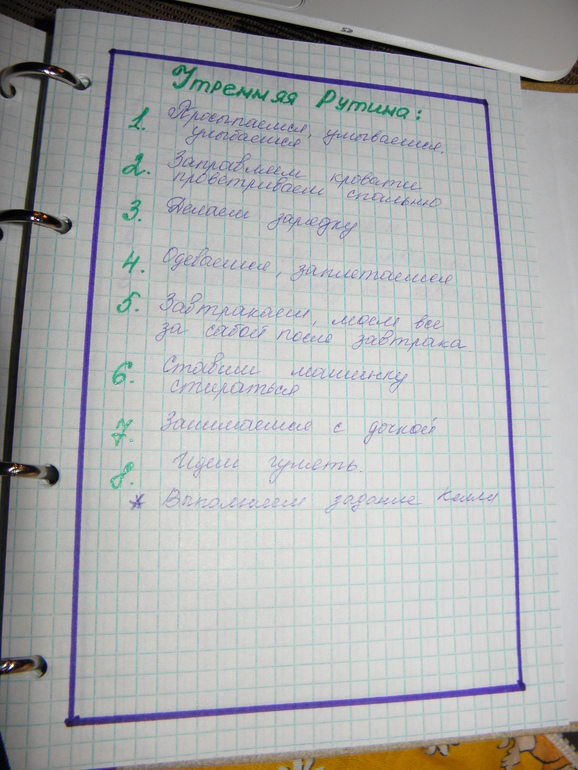 Утренняя Рутина:
1. Просыпаемся, умываемся,
улыбаемся
2. Заправляем кровати
проветриваем спальню
3. Делаем зарядку
4. Одеваемся, заплетаемся
5. Завтракаем, моем все
за сабой после завтрака.
6. Ставим машинку
стираться
7. Занимаемся с дочкой
8. Идем гулять.
* Выполняем задание Келли